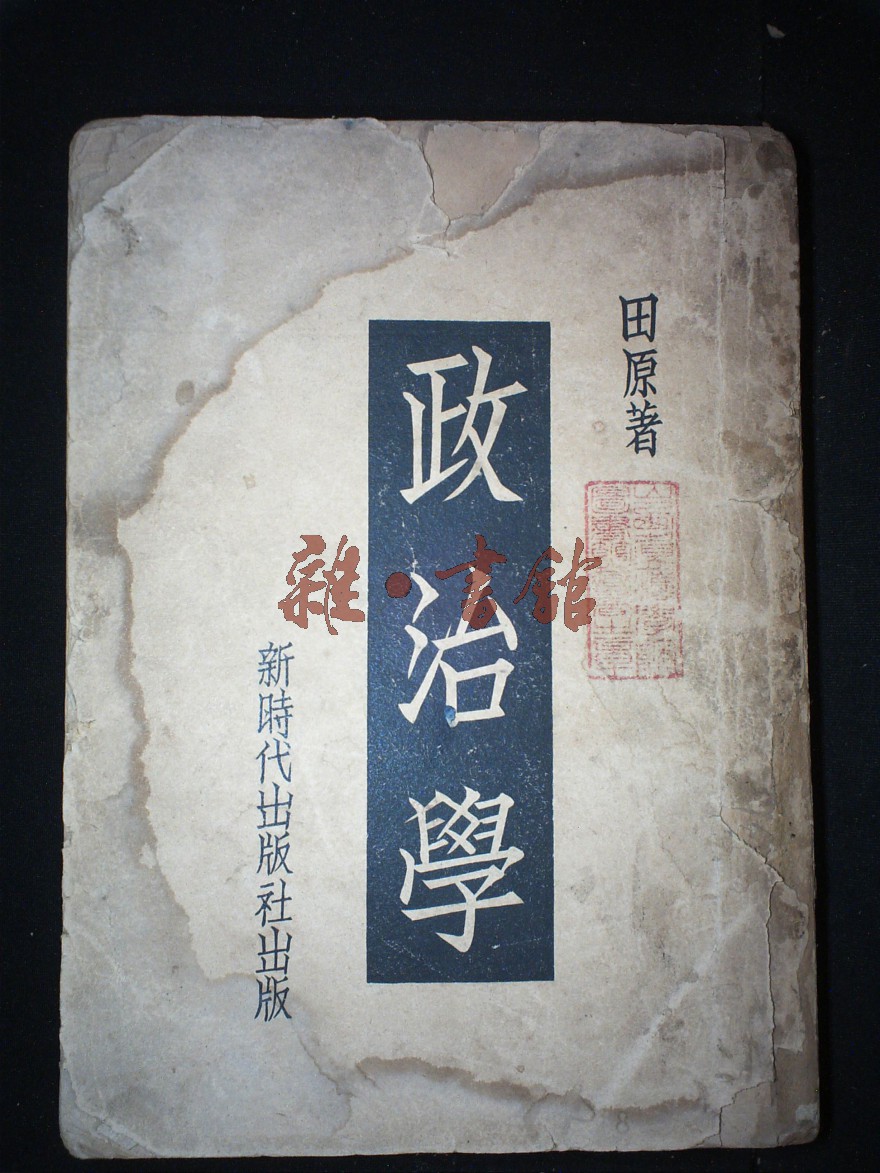 田原著
政治學
新時代出版社出版
雜·書館